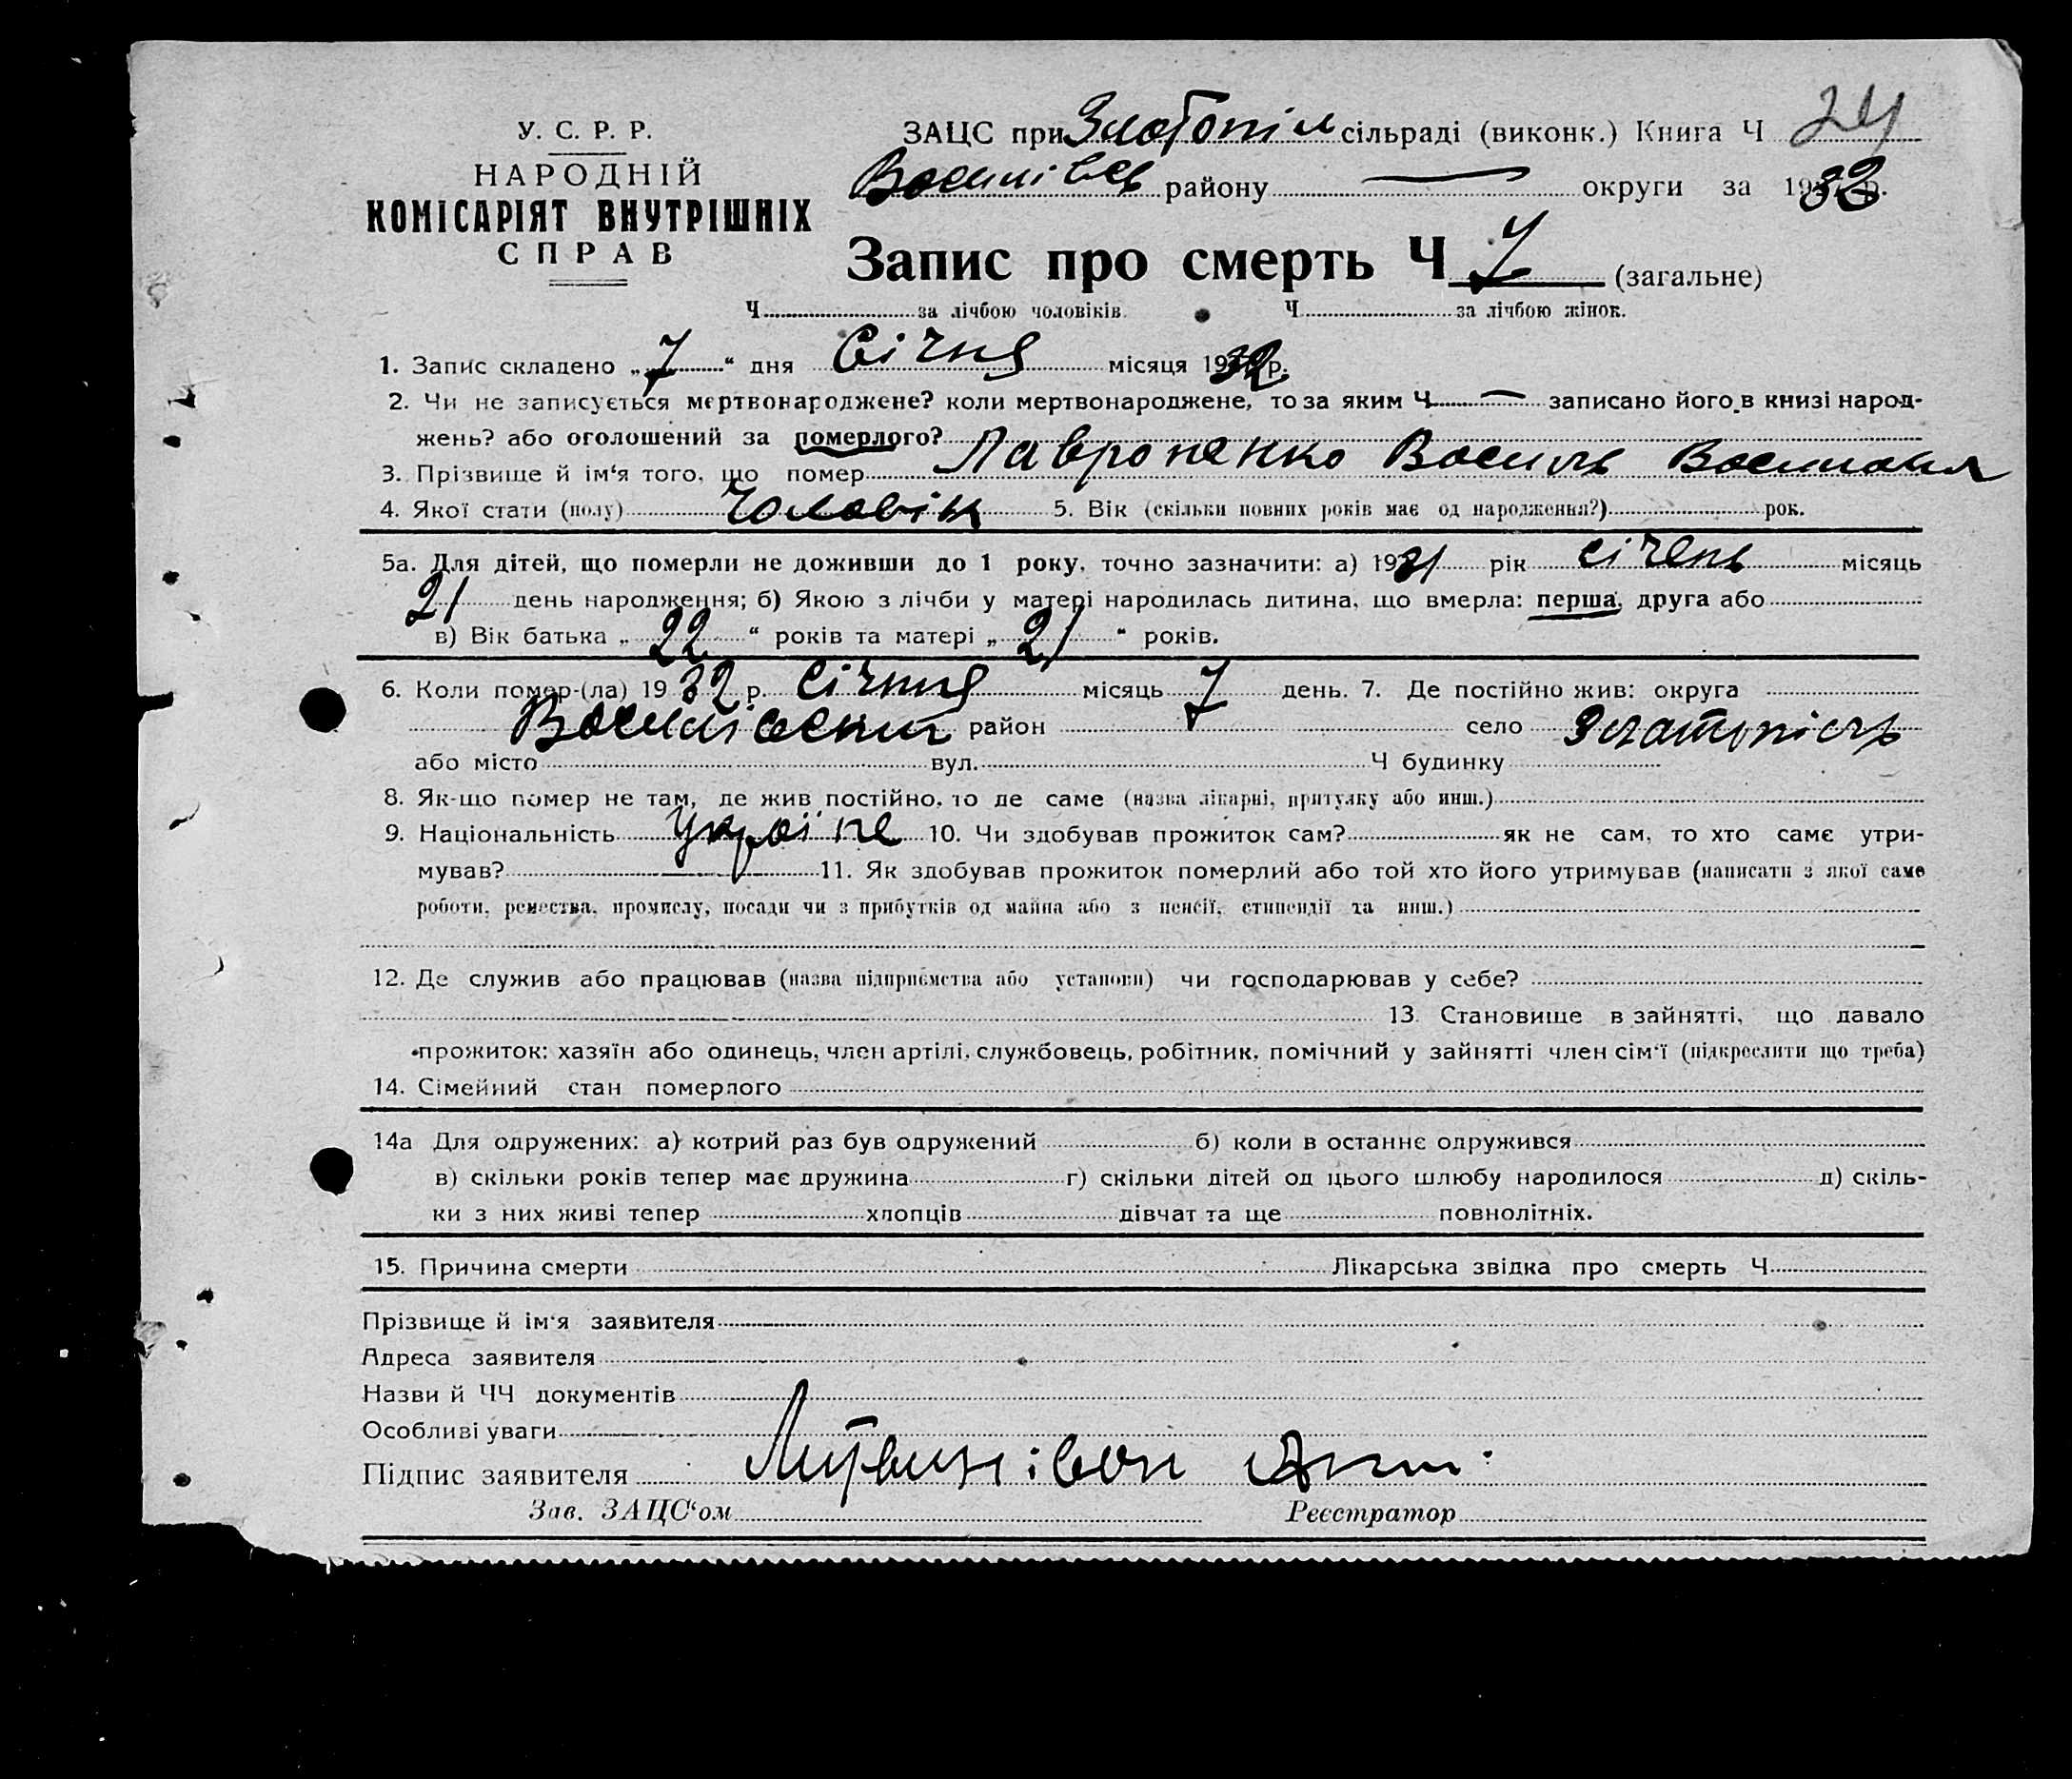 У. С. Р. Р.
НАРОДНІЙ
КОМІСАРІЯТ ВНУТРІШНІХ
СПРАВ
ЗАЦС при Злотопіл сільраді (виконк.) Книга Ч 24
Василівсь району — округи за 1932 р.
Запис про смерть Ч 7 (загальне)
Ч за лічбою чоловіків. Ч за лічбою жінок.
1. Запис складено „7“ дня Січня місяця 1932 р.
2. Чи не записується мертвонароджене? коли мертвонароджене, то за яким Ч — записано його в книзі народ-
жень? або оголошений за померлого?
3. Прізвище й ім‘я того, що помер Лавроненко Василь
4. Якої стати (полу) Чоловік 5. Вік (скільки повних років має од народження?) рок.
5а. Для дітей, що померли не доживши до 1 року, точно зазначити: а) 1931 рік січень місяць
21 день народження; б) Якою з лічби у матері народилась дитина, що вмерла: перша, друга або
в) Вік батька „22“ років та матері „21“ років.
6. Коли помер-(ла) 1932 р. Січния місяць 7 день. 7. Де постійно жив: округа
Василівский район село Златопіль
або місто вул. Ч будинку
8. Як-що помер не там, де жив постійно, то де саме (назва лікарні, притулку або инш.)
9. Національність україне 10. Чи здобував прожиток сам? як не сам, то хто саме утри-
мував? 11. Як здобував прожиток померлий або той хто його утримував (написати з якої саме
роботи, ремества, промислу, посади чи з прибутків од майна або з пенсії, стипендії та инш.)
12. Де служив або працював (назва підприємства або установи) чи господарював у себе?
13. Становище в зайнятті, що давало
прожиток: хазяїн або одинець, член артілі, службовець, робітник, помічний у зайнятті член сім‘ї (підкреслити що треба)
14. Сімейний стан померлого
14а Для одружених: а) котрий раз був одружений б) коли в останнє одружився
в) скільки років тепер має дружина г) скільки дітей од цього шлюбу народилося д) скіль-
ки з них живі тепер хлопців дівчат та ще повнолітніх.
15. Причина смерти Лікарська звідка про смерть Ч
Прізвище й ім‘я заявителя
Адреса заявителя
Назви й ЧЧ документів
Особливі уваги
Підпис заявителя
Зав. ЗАЦС‘ом Реєстратор